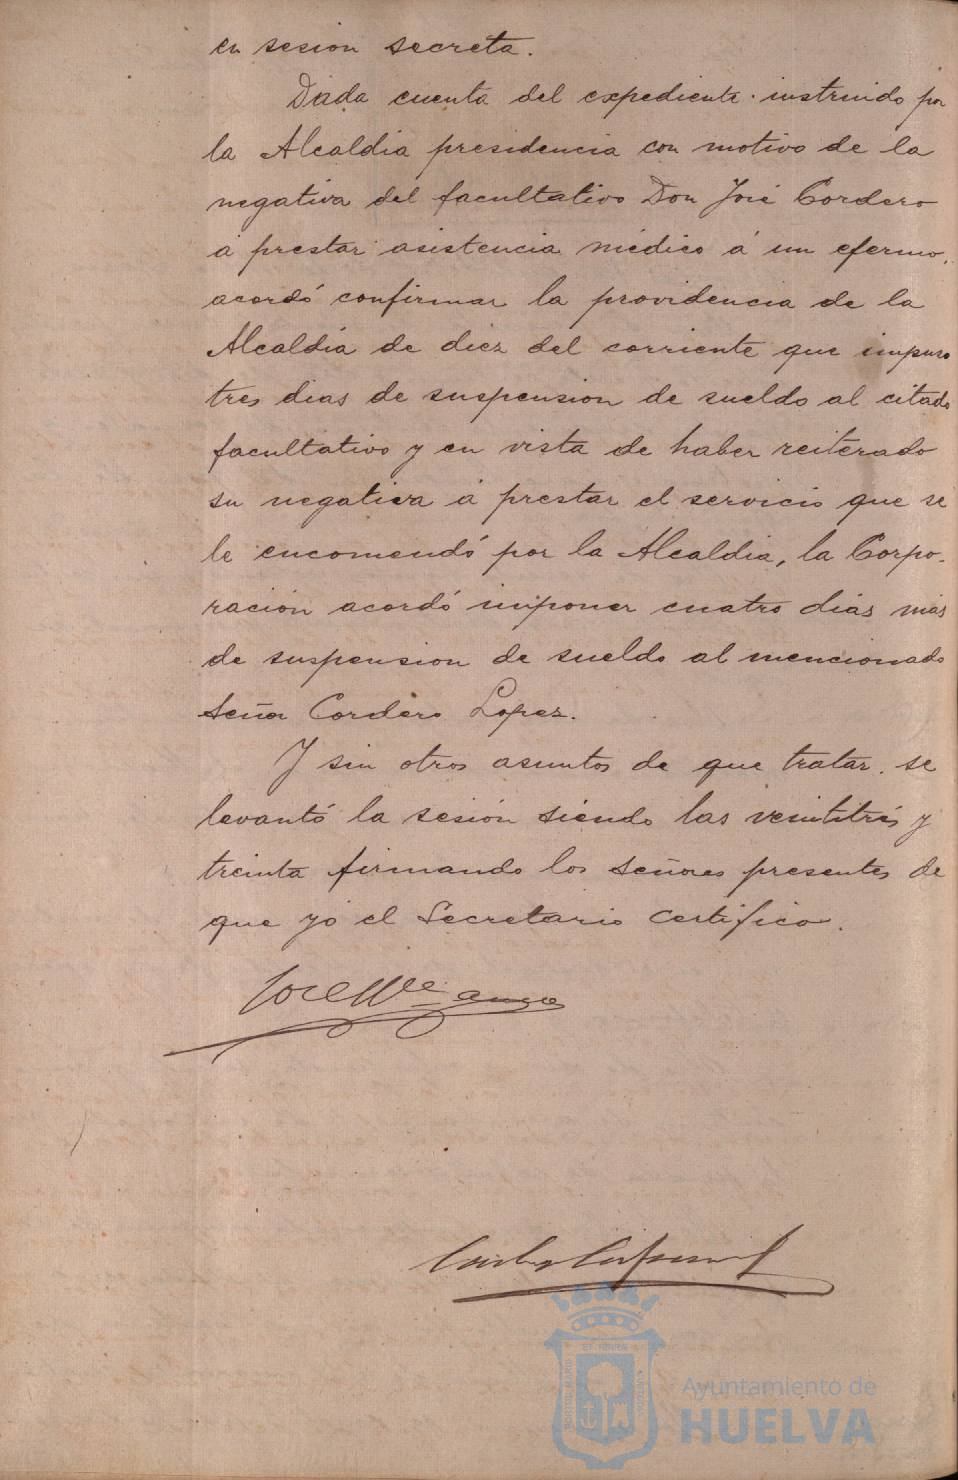 en sesion secreta.
Dada cuenta del expediente instruido por
la Alcaldia presidencia con motivo de la
negativa del facultativo Don José Cordero
á prestar asistencia médico á un efermo,
acordó confirmar la providencia de la
Alcaldia de diez del corriente que impuso
tres dias de suspension de sueldo al citado
facultativo y en vista de haber reiterado
su negativa á prestar el servicio que se
le encomendó por la Alcaldia, la Corpo-
ración acordó imponer cuatro dias mas
de suspension de sueldo al mencionado
Señor Cordero Lopez.
Y sin otros asuntos de que tratar se
levantó la sesión siendo las veintitrés y
treinta firmando los señores presentes de
que yo el Secretario certifico.
Ayuntamiento de
HUELVA